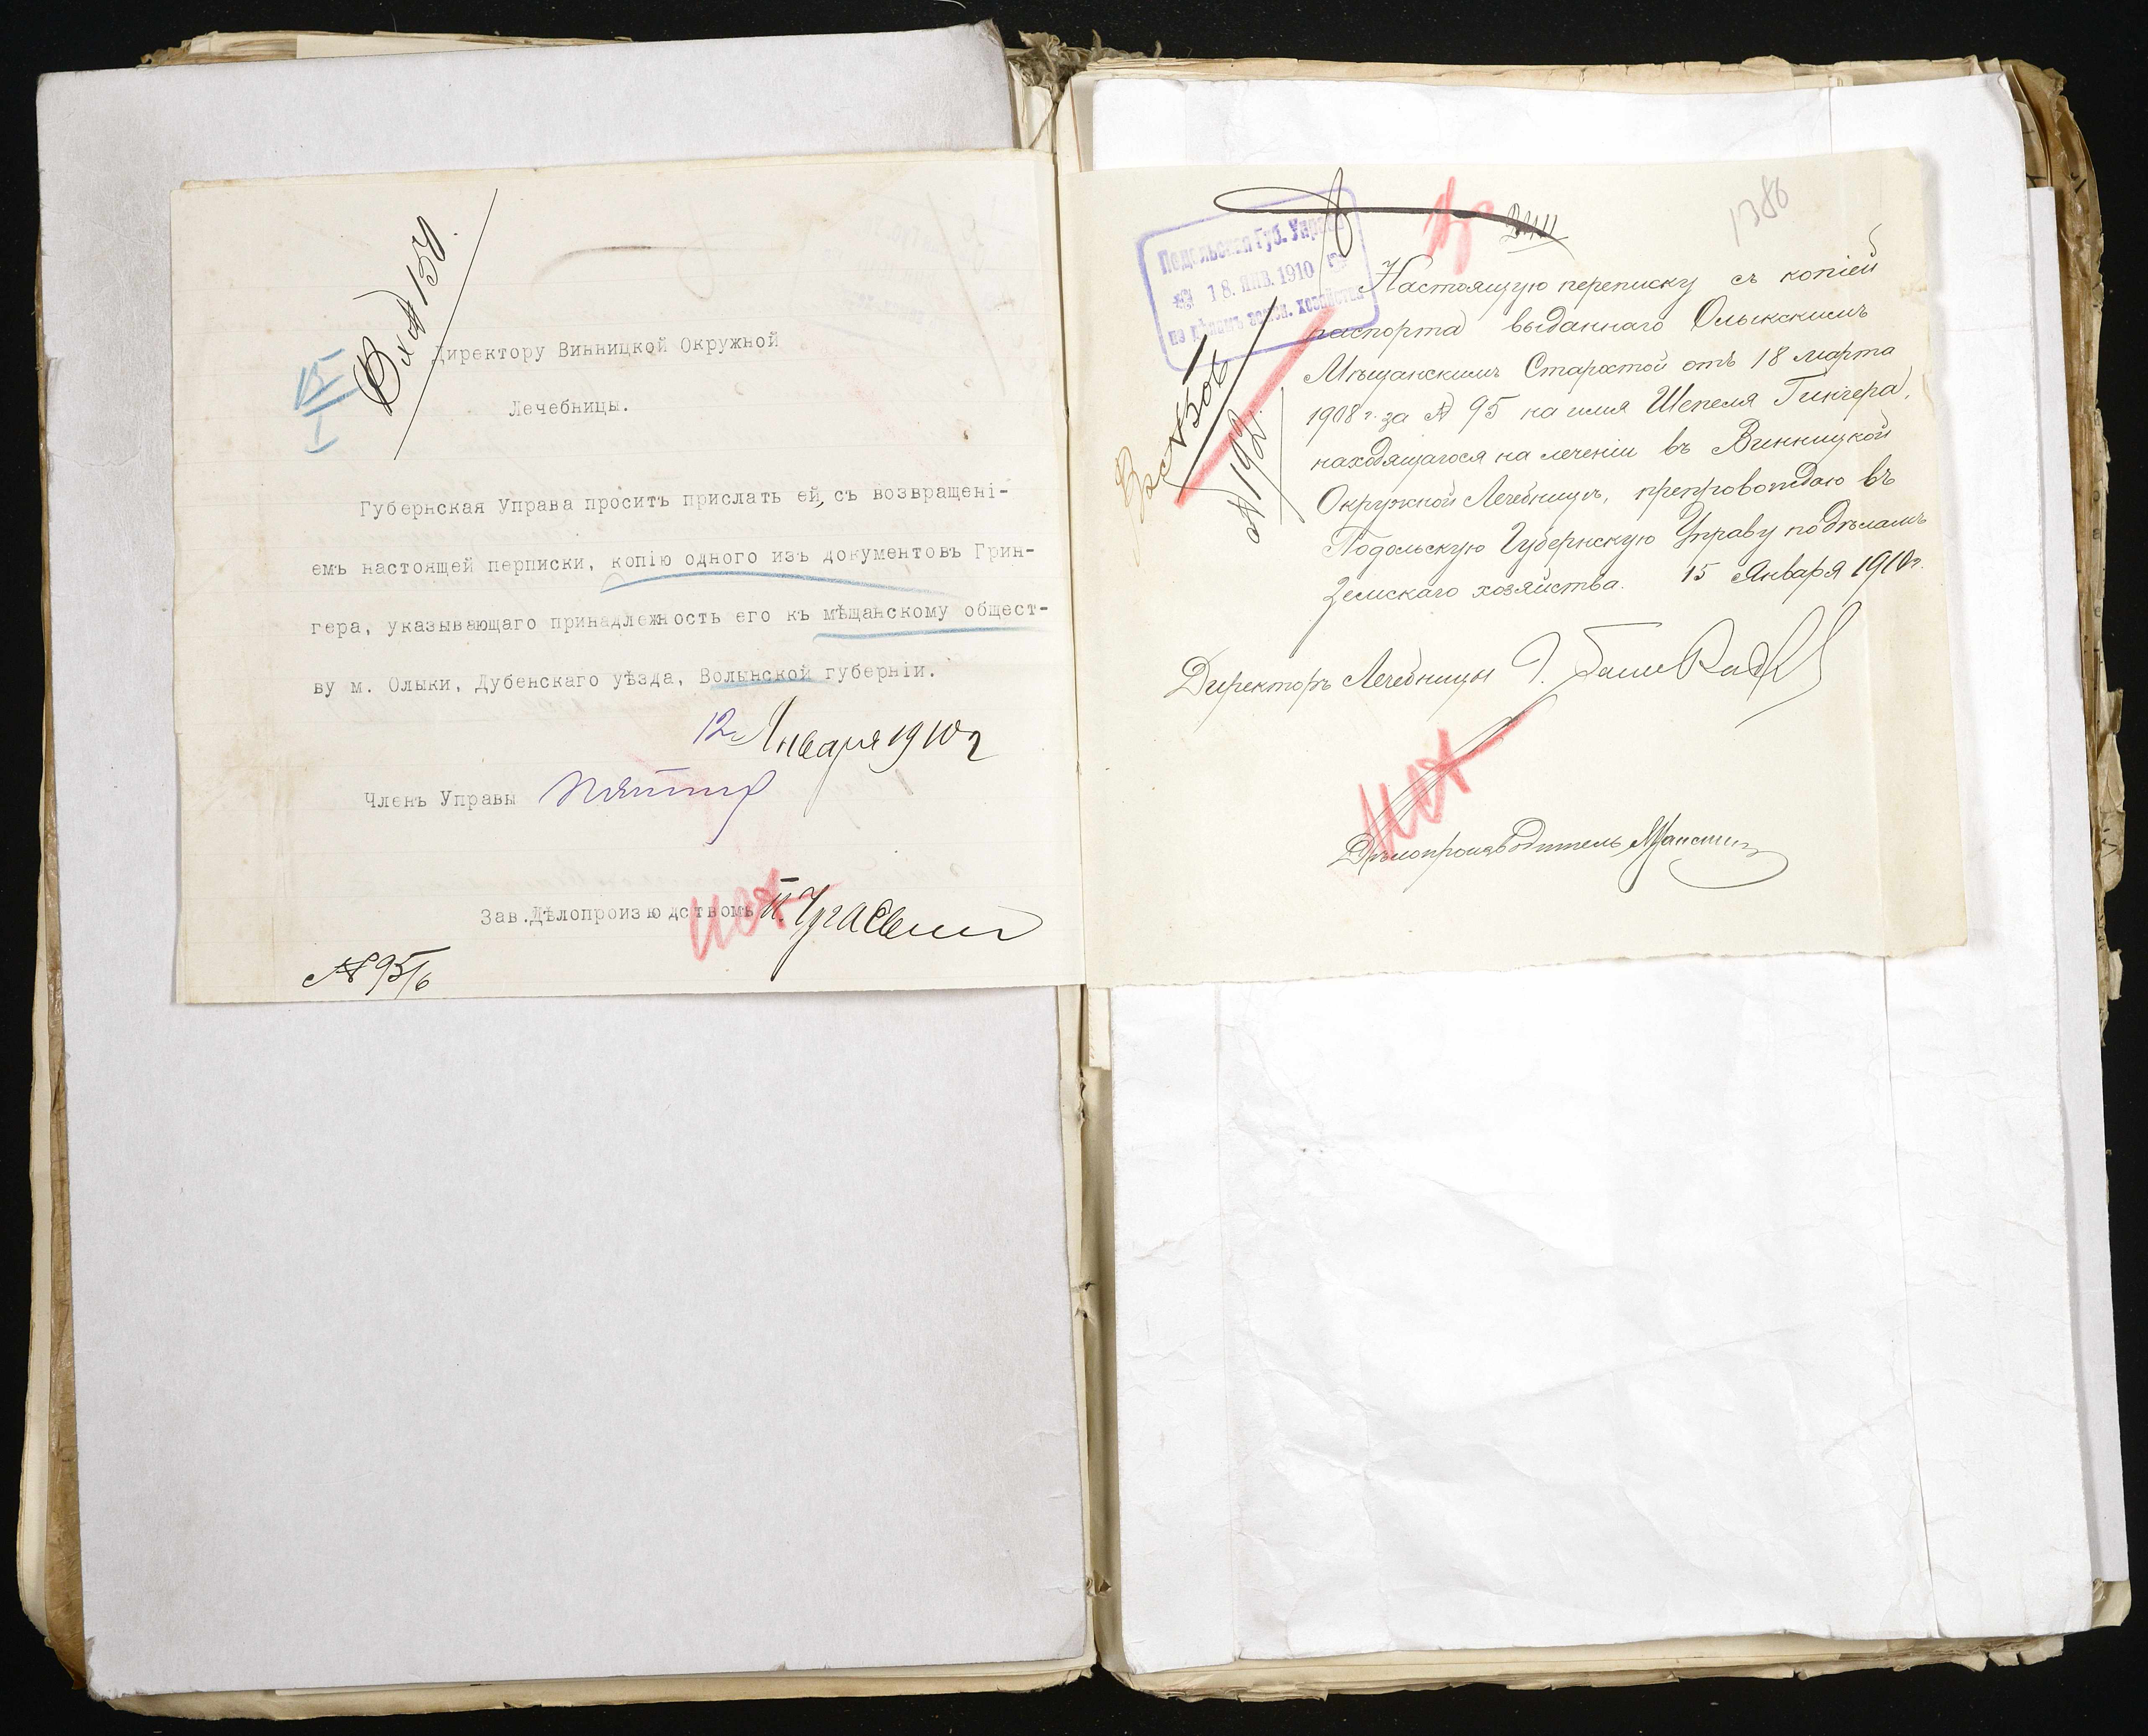 Вх № 154.
15
I
Директору Винницкой Окружной
Лечебницы.
Губернская Управа проситъ прислать ей, съ возвращені-
емъ настоящей перписки, копію одного изъ документовъ Грин-
гера, указывающаго принадлежность его къ мѣщанскому общест-
ву м. Олыки, Дубенскаго уѣзда, Волынской губерніи.
12 Января 1910 г
Членъ Управы
Зав. Дѣлопроизводствомъ
исх
№ 95/б
1386
Подольская Губ. Управа
18. ЯНВ. 1910
по дѣламъ земск. хозяйства
№ 192.
Настоящую переписку съ копіей
паспорта выданнаго Олыкскимъ
Мѣщанскимъ Старостой отъ 18 марта
1908 г. за № 95 на имя Шепеля Гингера,
находящагося на леченіи въ Винницкой
Окружной Лечебницѣ, препровождаю въ
Подольскую Губернскую Управу по дѣламъ
Земскаго хозяйства. 15 Января 1910 г.
Директоръ Лечебницы
исх
Дѣлопроизводитель